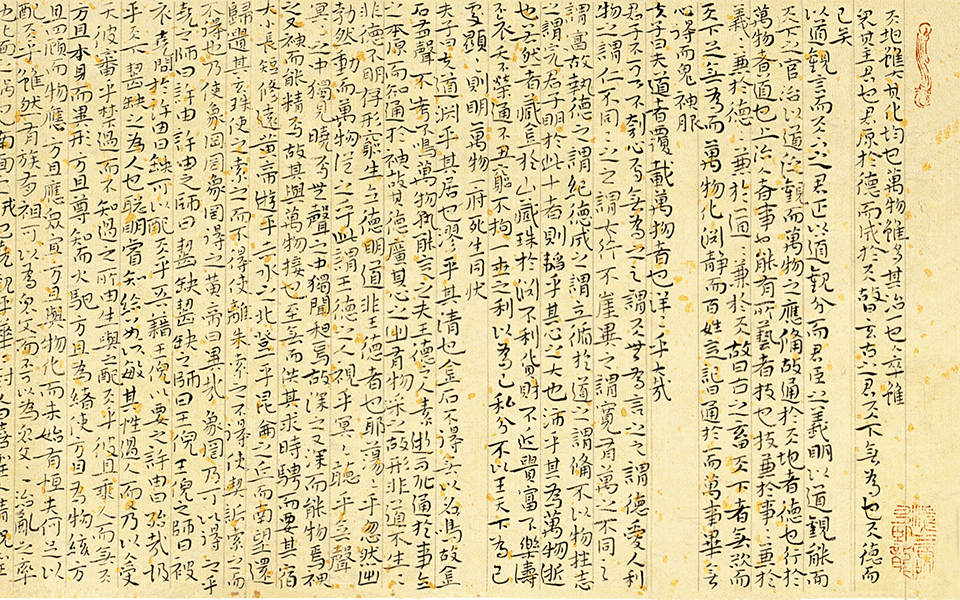 天地雖大其化均也萬物雖多其治一也人卒雖
眾其主君也君原於德而成於天故曰玄古之君天下無為也天德而
已矣
以道觀言而天下之君正以道觀分而君臣之義明以道觀能而
天下之官治以道汎觀而萬物之應備故通於天地者德也行於
萬物者道也上治人者事也能有所藝者技也技兼於事事兼於
義義兼於德德兼於道道兼於天故曰古之畜天下者無欲而
天下足無為而萬物化淵靜而百姓定記曰通於一而萬事畢無
心得而鬼神服
夫子曰夫道者覆載萬物者也洋洋乎大哉
君子不可以不刳心焉無為為之之謂天無為言之之謂德愛人利
物之謂仁不同同之之謂大行不崖異之謂寬有萬不同之
謂富故執德之謂紀德成之謂立循於道之謂備不以物挫志
之謂完君子明於此十者則韜乎其事心之大也沛乎其為萬物逝
也若然者藏金於山藏珠於淵不利貨財不近貴富不樂壽
不哀夭不榮通不丑窮不拘一世之利以為己私分不以王天下為己
處顯顯則明萬物一府死生同狀
夫子曰夫道淵乎其居也漻乎其清也金石不得無以鳴故金
石有聲不考不鳴萬物孰能定之夫王德之人素逝而恥通於事立
之本原而知通於神故其德廣其心之出有物采之故形非道不生生
非德不明存形窮生立德明道非王德者也耶蕩蕩乎忽然出
勃然動而萬物從之乎此謂王德之人視乎冥冥聽乎無聲
冥冥之中獨見曉焉無聲之中獨聞和焉故深之又深而能物焉神
之又神而能精焉故其與萬物接也至無而供其求時騁而要其宿
大小長短修遠黃帝遊乎赤水之北登乎崑崙之丘而南望還
歸遺其玄珠使知索之而不得使離朱索之而不得使喫詬索之而
不得也乃使象罔象罔得之黃帝曰異哉象罔乃可以得之乎
堯之師曰許由許由之師曰齧缺齧缺之師曰王倪王倪之師曰被
衣堯問於許由曰齧缺可以配天乎吾藉王倪以要之許由曰殆哉圾
乎天下齧缺之為人也聰明睿知給數以敏其性過人而又乃以人受
天彼審乎禁過而不知過之所由生與之配天乎彼且乘人而無天
方且本身而異形方且尊知而火馳方且為緒使方且為物絯方
且四顧而物應方且應眾宜方且與物化而未始有恆夫何足以
配天乎雖然有族有祖可以為眾父而不可以為眾父父治亂之率
也北面之禍也南面之賊也堯觀乎華封人曰嘻